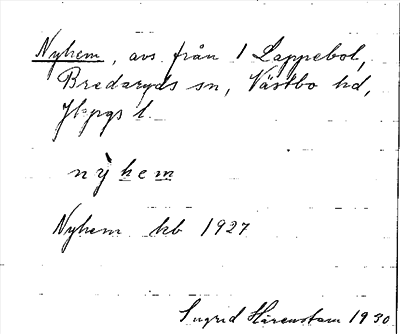 Nyhem, avs. från 1 Lappebol,
Bredaryds sn, Västbo hd,
Jkpgs l.
nỳhem
Nyhem kb 1927
Ingrid Härenstam 1930